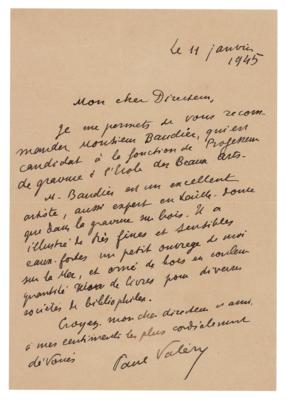 Le 11 janvier
1945
Mon cher Directeur,
Je me permets de vous recom-
mander Monsieur Baudier, qui est
candidat à la fonction de Professeur
de gravure à l'École des Beaux Arts.
M. Baudier est un excellent
artiste, aussi expert en taille-douce
que dans la gravure sur bois. Il a
illustré de très fines et sensibles
eaux-fortes un petit ouvrage de moi
sur la Mer, et orné de bois en couleur
quantité de livres pour diverses
sociétés de bibliophiles.
Croyez, mon cher directeur et ami,
à mes sentiments les plus cordialement
dévoués
Paul Valéry